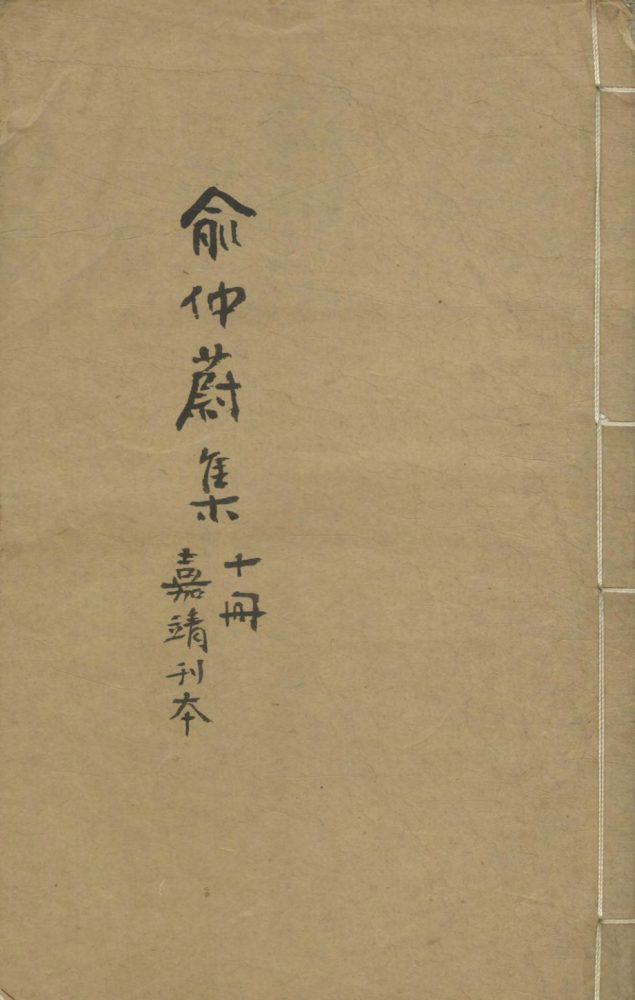 俞仲蔚集
十冊
嘉靖刊本